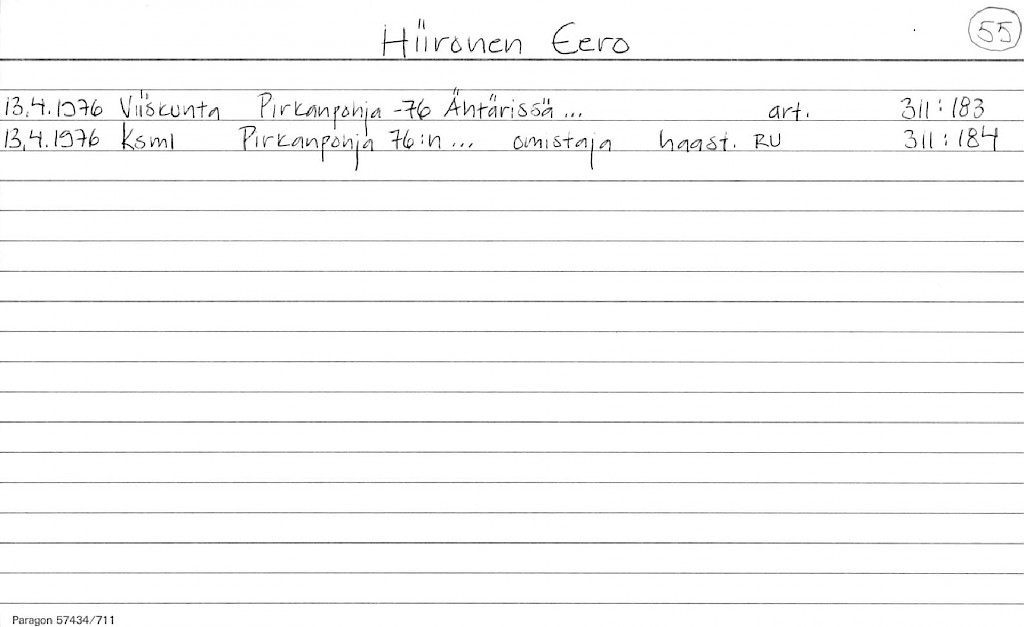 Hiironen Eero 55
13.4.1976 Viiskunta Pirkanpohja -76 Ähtärissä... art. 311:183
13.4.1976 Ksml Pirkanpohja 76:n... omistaja haast. RU 311:184
Paragon 57434/711